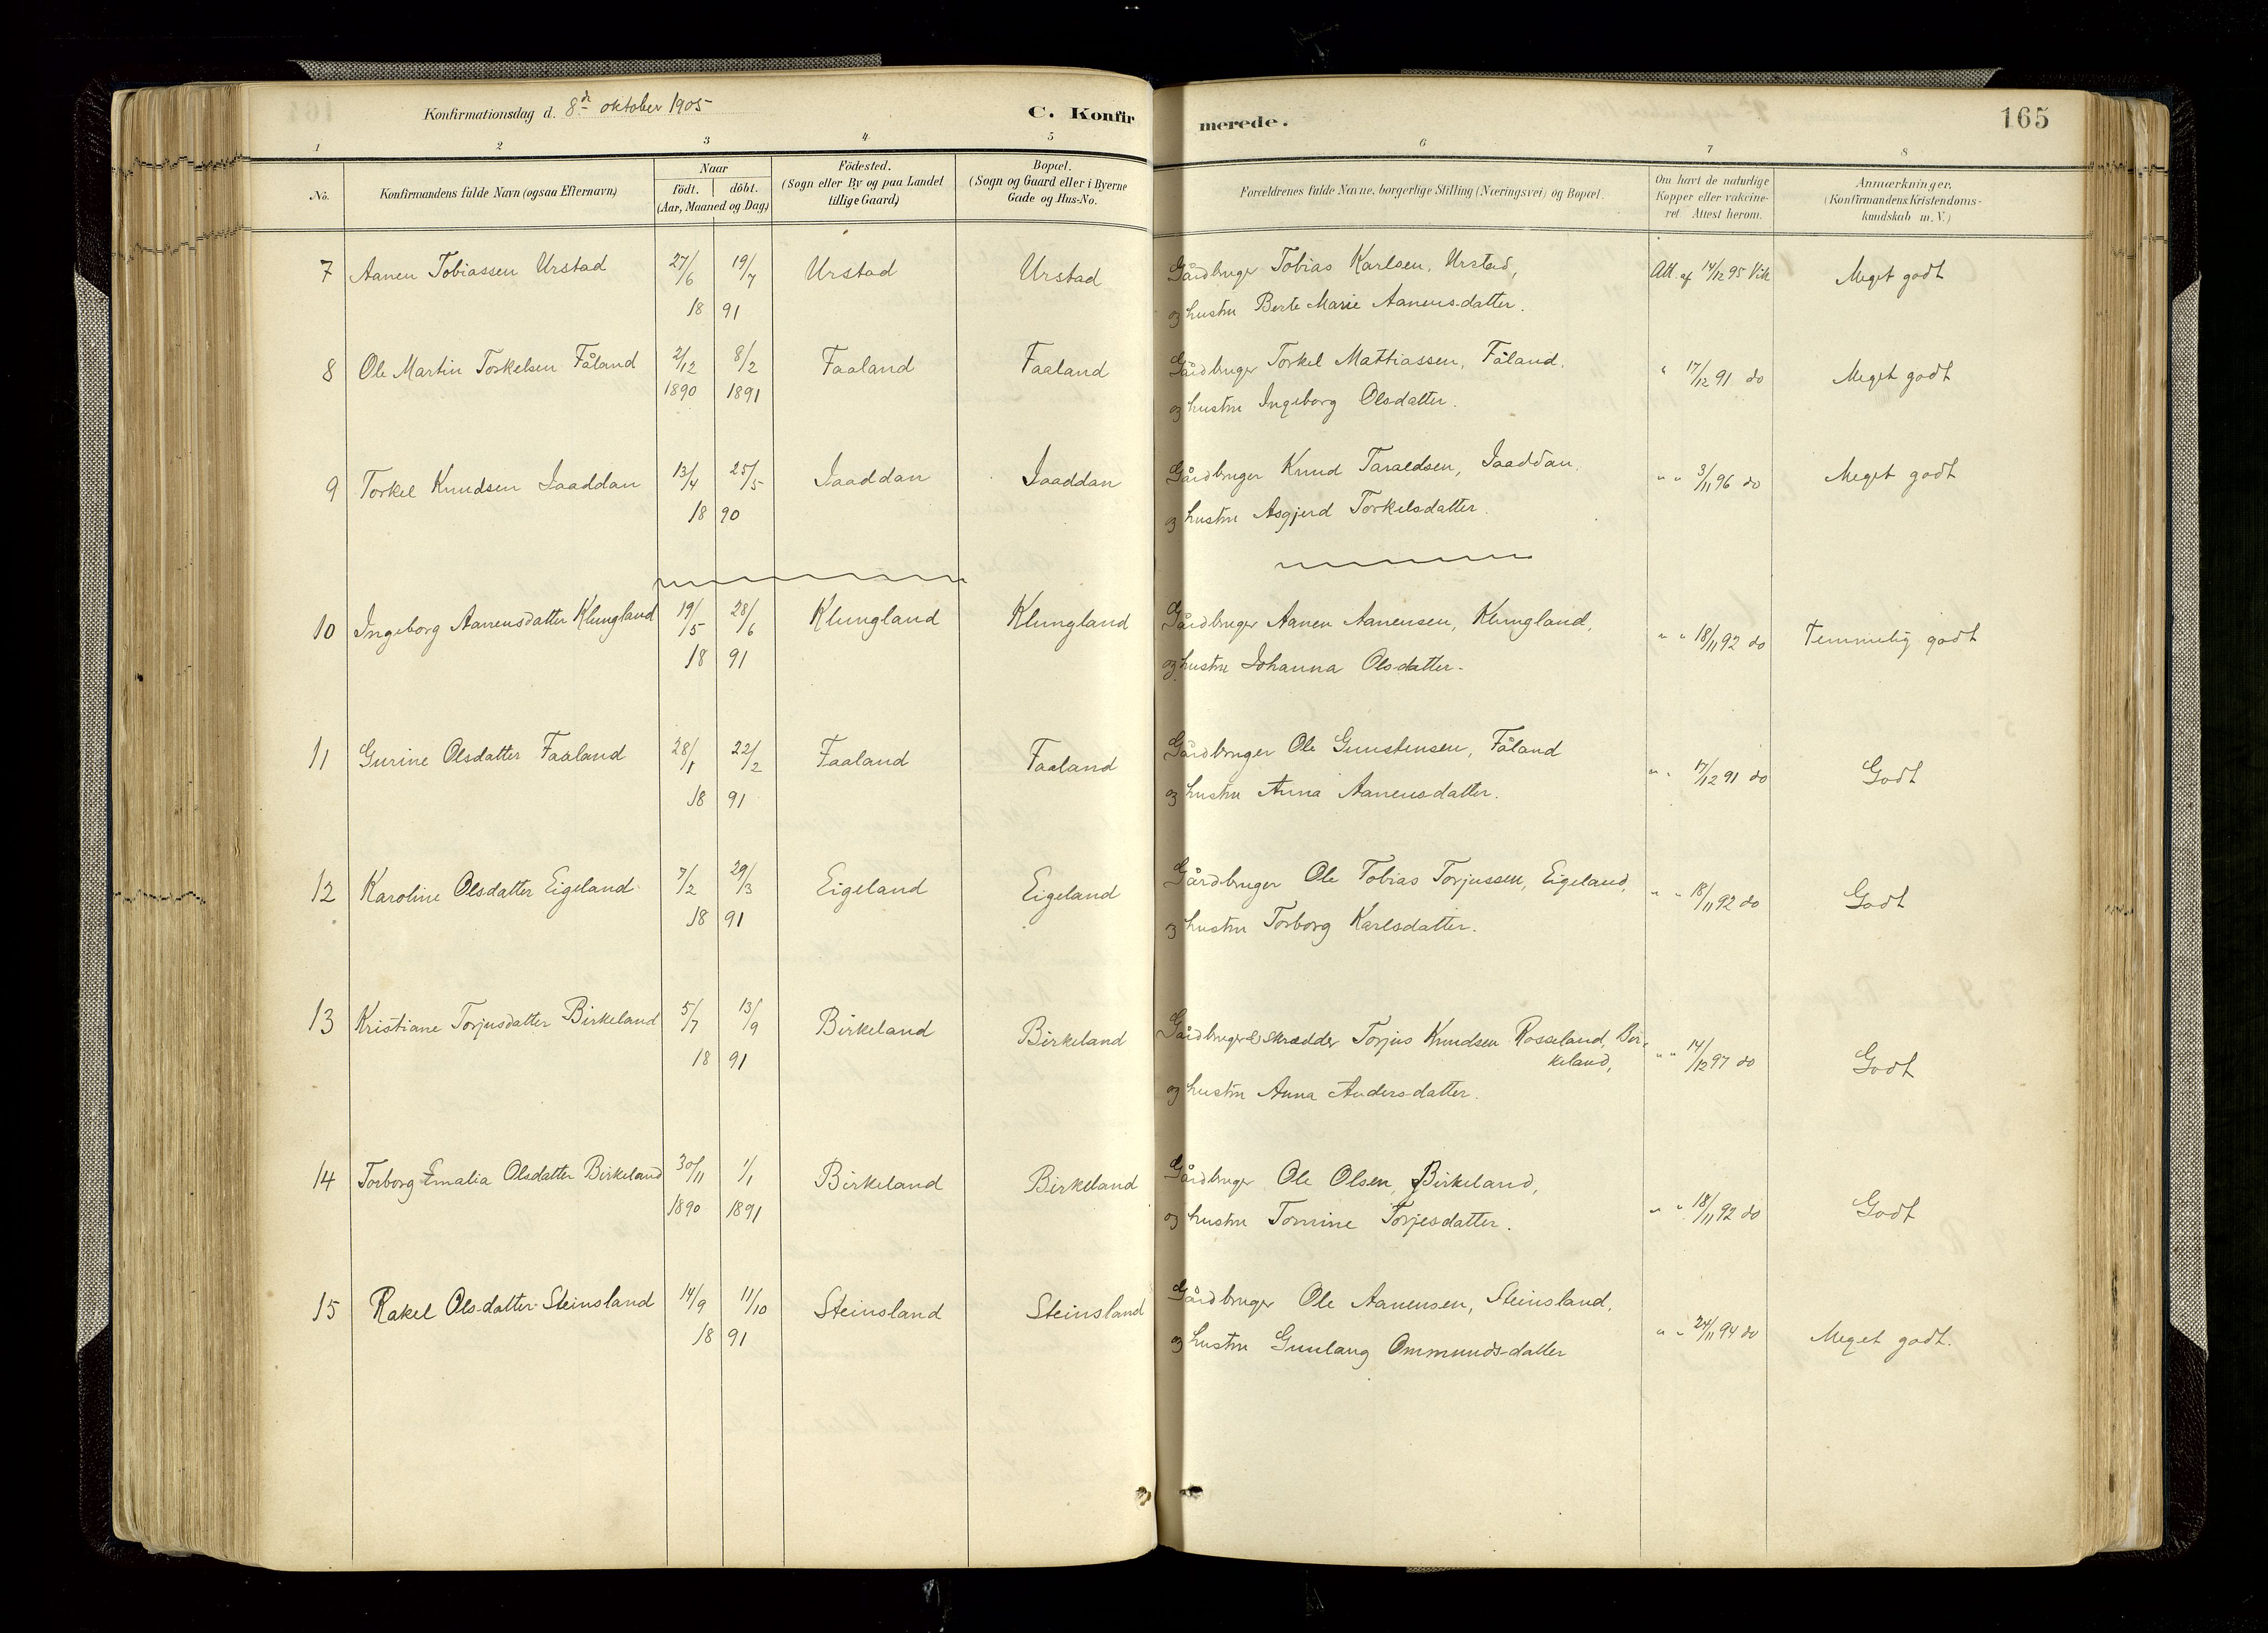 Konfirmationsdag d. 8de oktober 1905
C. Konfirmerede.
165
1 2 3 4 5 6 7 8
No.
Konfirmandens fulde Navn (ogsaa Efternavn)
Naar
født. døbt.
(Aar, Maaned og Dag)
Fødested.
(Sogn eller By og paa Landet
tillige Gaard)
Bopæl.
(Sogn og Gaard eller i Byerne
Gade og Hus-No.
Forældrenes fulde Navne, borgerlige Stilling (Næringsvei) og Bopæl.
Om havt de naturlige
Kopper eller vakcine-
ret. Attest herom.
Anmærkninger.
(Konfirmandens Kristendoms-
kundskab m. V.)
7 Aanen Tobiassen Urstad 27/6 19/7 Urstad Urstad Gårdbruger Tobias Karlsen, Urstad, Att. af 14/12 95 Vik Meget godt
18 91 og hustru Berte Marie Aanensdatter.
8 Ole Martin Torkelsen Fåland 2/12 8/2 Faaland Faaland Gårdbruger Torkel Mattiassen, Fåland, " 17/12 91 do Meget godt
1890 1891 og hustru Ingeborg Olsdatter.
9 Torkel Knudsen Iaaddan 13/4 25/5 Iaaddan Iaaddan Gårdbruger Knud Taraldsen, Iaaddan, " " 3/11 96 do Meget godt
18 90 og hustru Asgjerd Torkelsdatter.
10 Ingeborg Aanensdatter Klungland 19/5 28/6 Klungland Klungland Gårdbruger Aanen Aanensen, Klungland, " " 18/11 92 do Temmelig godt
18 91 og hustru Johanna Olsdatter.
11 Gurine Olsdatter Faaland 28/1 22/2 Faaland Faaland Gårdbruger Ole Gunstensen, Fåland " " 17/12 91 do Godt
18 91 og hustru Anna Aanensdatter.
12 Karoline Olsdatter Eigeland 7/2 29/3 Eigeland Eigeland Gårdbruger Ole Tobias Torjussen, Eigeland, " " 18/11 92 do Godt
18 91 og hustru Torborg Karlsdatter.
13 Kristiane Torjusdatter Birkeland 5/7 13/9 Birkeland Birkeland Gårdbruger & skrædder Torjus Knudsen Rosseland, Bir-
keland, " " 14/12 97 do Godt
18 91 og hustru Anna Andersdatter.
14 Torborg Emalia Olsdatter Birkeland 30/11 1/1 Birkeland Birkeland Gårdbruger Ole Olsen, Birkeland,
1890 1891 og hustru Tomine Torjesdatter. " " 18/11 92 do Godt
15 Rakel Olsdatter Steinsland 14/9 11/10 Steinsland Steinsland Gårdbruger Ole Aanensen, Steinsland,
18 91 og hustru Gunlaug Ommundsdatter " " 24/11 94 do Meget godt.